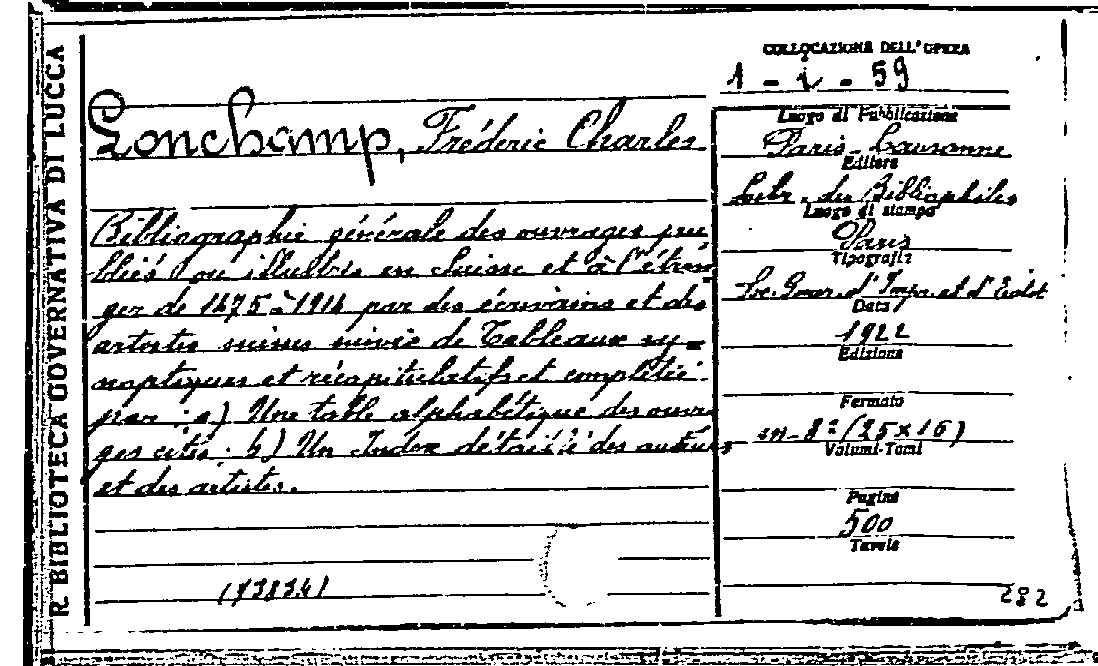 R. BIBLIOTECA GOVERNATIVA DI LUCCA
COLLOCAZIONE DELL'OPERA
1 - i - 59
Lonchamp, Frédéric Charles
Bibliographie générale des ouvrages pu
bliés ou illustrés en Suisse et à l'étran
ger de 1475 à 1914 par des écrivains et des
artistes suisses suivie de Tableaux sy=
noptiques et récapitulatifs et complétée
par : a) Une table alphabétique des ouvra
ges cités. b) Un Index détaillé des auteurs
et des artistes.
(73834)
Luogo di Pubblicazione
Paris - Lausanne
Editore
Libr. des Bibliophiles
Luogo di stampa
Paris
Tipografia
Soc. Gener. d'Impr. et d'Edit
Data
1922
Edizione
Formato
in-8º (25 x 16)
Volumi-Tomi
Pagine
500
Tavole
282